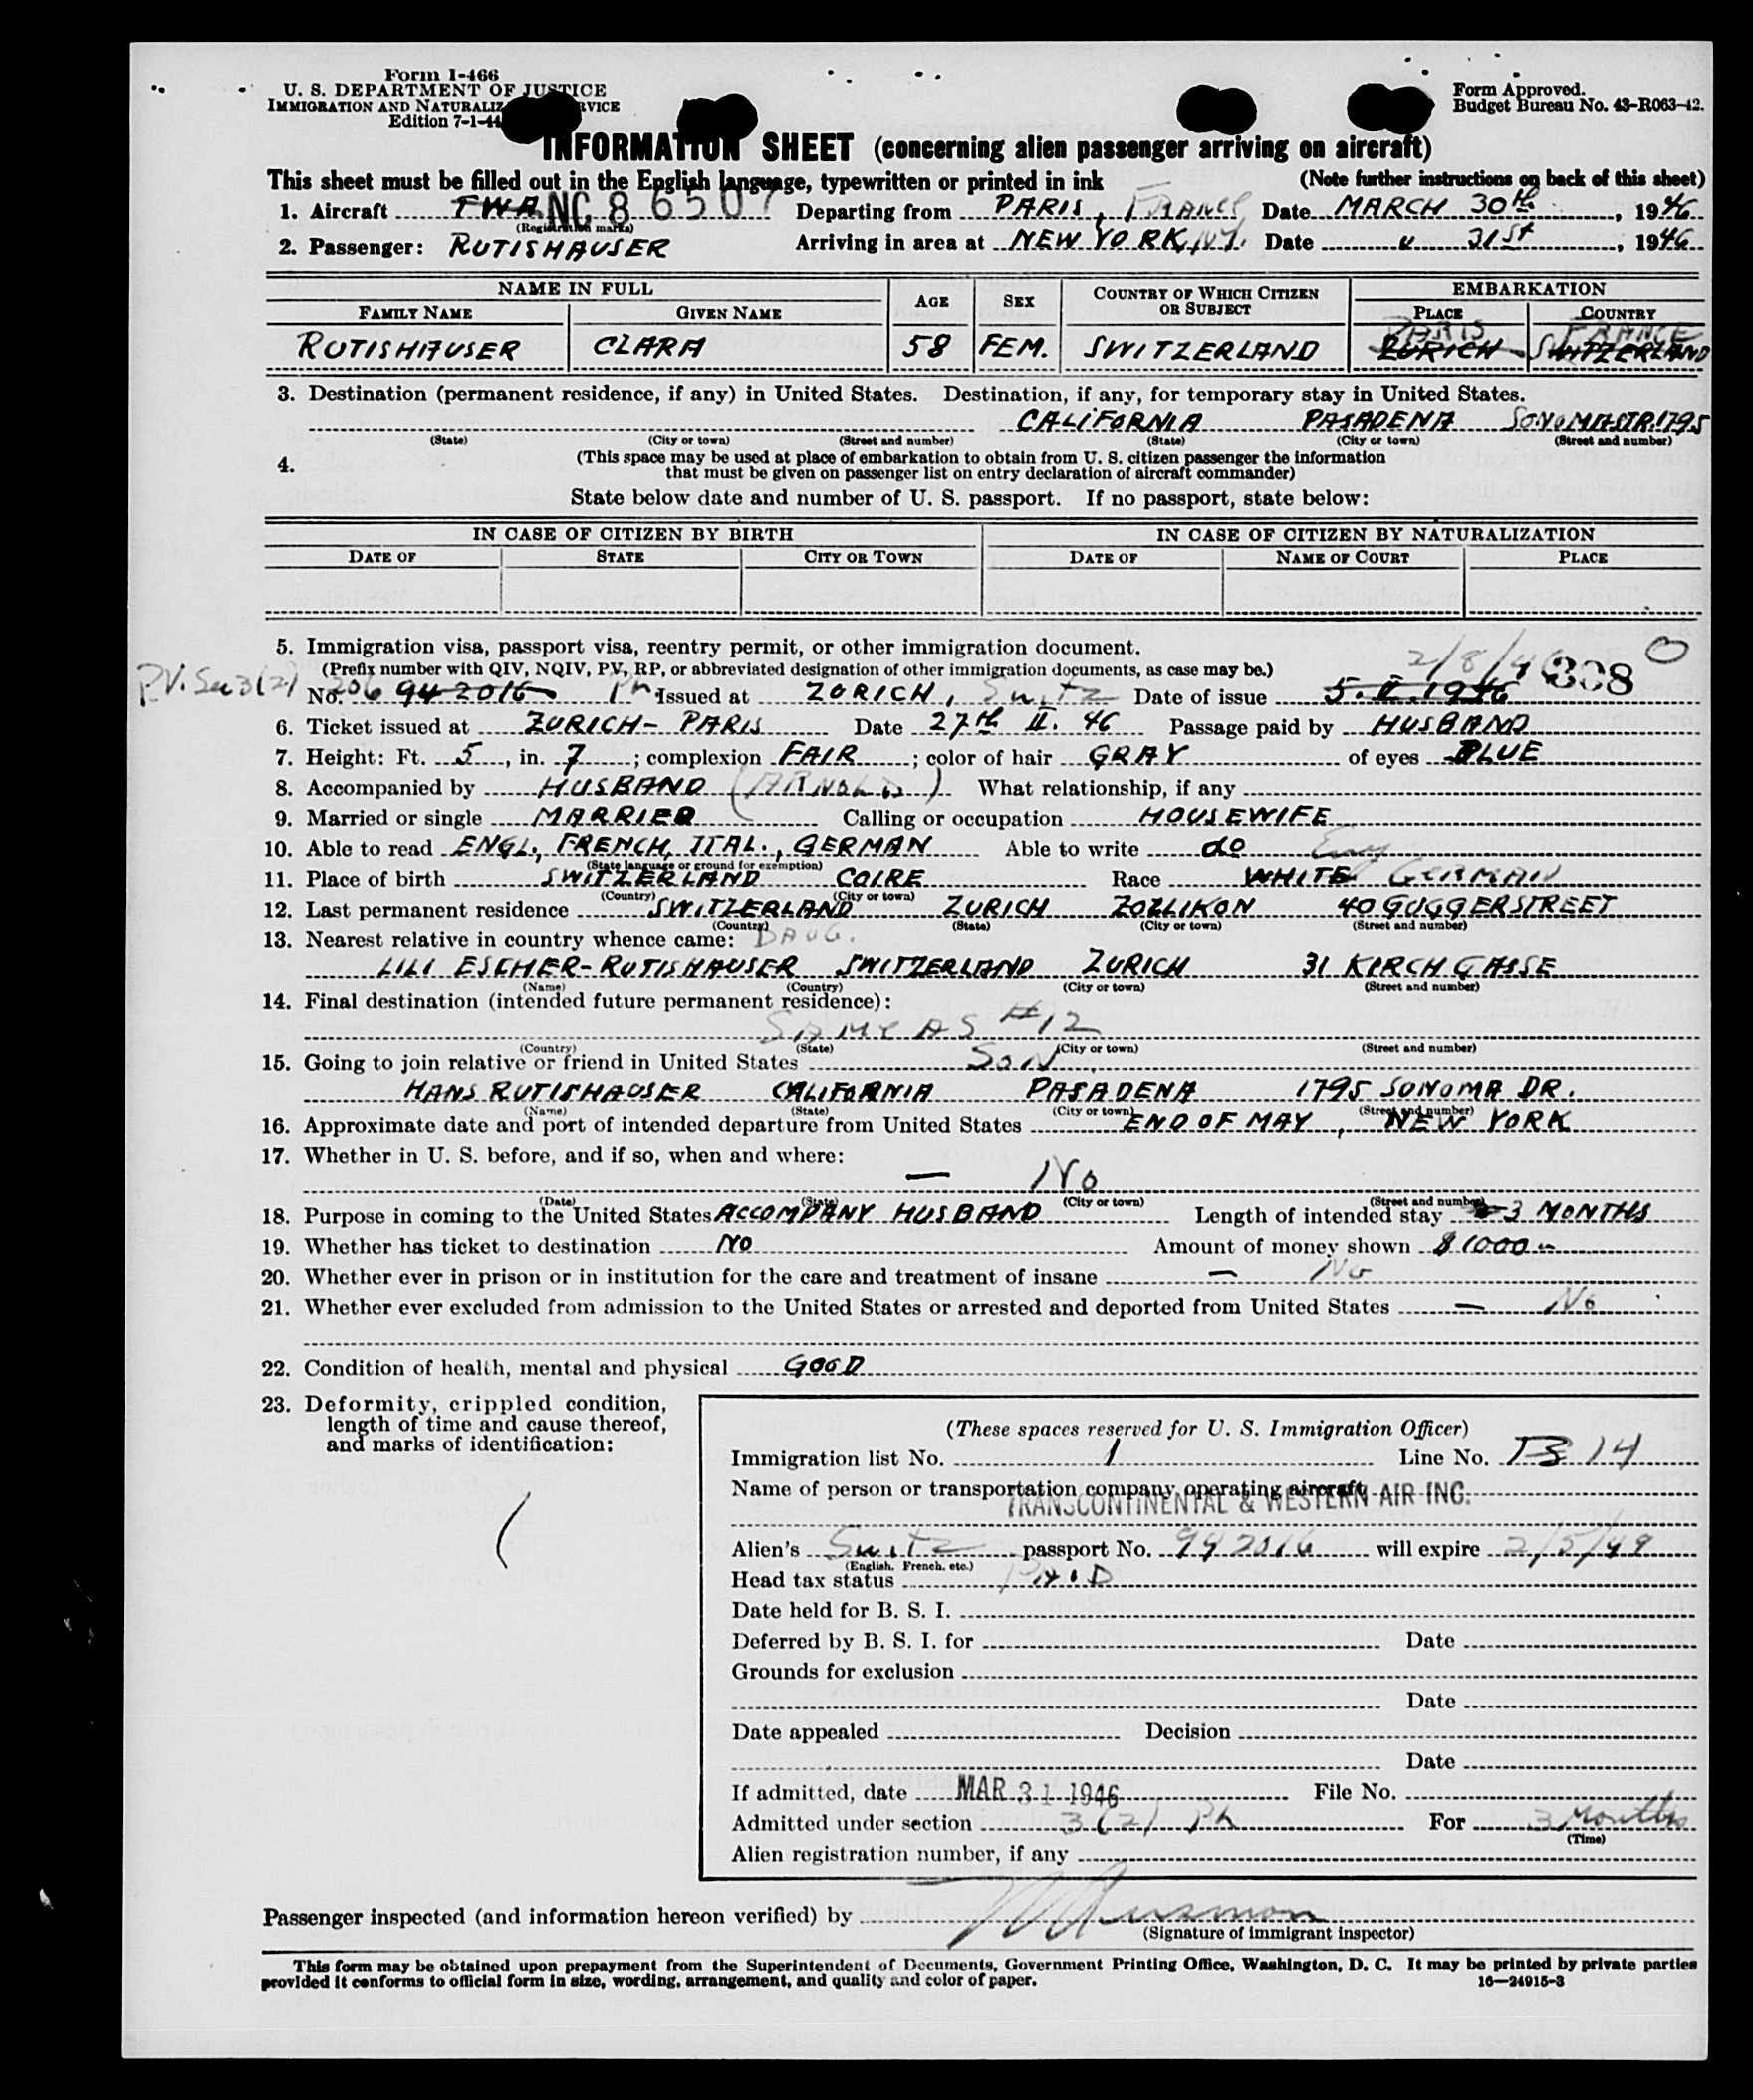 Form I-466
U. S. DEPARTMENT OF JUSTICE
IMMIGRATION AND NATURALIZ RVICE
Edition 7-1-44
Form Approved.
Budget Bureau No. 43-R063-42.
INFORMATION SHEET (concerning alien passenger arriving on aircraft)
This sheet must be filled out in the English language, typewritten or printed in ink (Note further instructions on back of this sheet)
1. Aircraft TWA NC 86507 Departing from PARIS, FRANCE Date MARCH 30th, 1946
(Registration marks)
2. Passenger: RUTISHAUSER Arriving in area at NEW YORK, N.Y. Date " 31st, 1946
NAME IN FULL AGE SEX COUNTRY OF WHICH CITIZEN OR SUBJECT EMBARKATION
FAMILY NAME GIVEN NAME PLACE COUNTRY
PARIS FRANCE
RUTISHAUSER CLARA 58 FEM. SWITZERLAND ZURICH SWITZERLAND
3. Destination (permanent residence, if any) in United States. Destination, if any, for temporary stay in United States.
CALIFORNIA PASADENA SONOMASTR. 1795
(State) (City or town) (Street and number) (State) (City or town) (Street and number)
4. (This space may be used at place of embarkation to obtain from U. S. citizen passenger the information
that must be given on passenger list on entry declaration of aircraft commander)
State below date and number of U. S. passport. If no passport, state below:
IN CASE OF CITIZEN BY BIRTH IN CASE OF CITIZEN BY NATURALIZATION
DATE OF STATE CITY OR TOWN DATE OF NAME OF COURT PLACE
5. Immigration visa, passport visa, reentry permit, or other immigration document.
(Prefix number with QIV, NQIV, PV, RP, or abbreviated designation of other immigration documents, as case may be.) 2/8/46 0
PV. Sec 3(2) No. 206 942016 Issued at ZURICH, Switz Date of issue 5. II. 1946 308
6. Ticket issued at ZURICH - PARIS Date 27th II. 46 Passage paid by HUSBAND
7. Height: Ft. 5, in. 7; complexion FAIR; color of hair GRAY of eyes BLUE
8. Accompanied by HUSBAND (ARNOLD) What relationship, if any
9. Married or single MARRIED Calling or occupation HOUSEWIFE
10. Able to read ENGL., FRENCH, ITAL., GERMAN Able to write do Eng
(State language or ground for exemption)
11. Place of birth SWITZERLAND COIRE Race WHITE GERMAN
(Country) (City or town)
12. Last permanent residence SWITZERLAND ZURICH ZOLLIKON 40 GUGGERSTREET
(Country) (State) (City or town) (Street and number)
13. Nearest relative in country whence came: DAUG.
LILI ESCHER-RUTISHAUSER SWITZERLAND ZURICH 31 KIRCHGASSE
(Name) (Country) (City or town) (Street and number)
14. Final destination (intended future permanent residence):
SAME AS #12
(Country) (State) (City or town) (Street and number)
15. Going to join relative or friend in United States SON
HANS RUTISHAUSER CALIFORNIA PASADENA 1795 SONOMA DR.
(Name) (State) (City or town) (Street and number)
16. Approximate date and port of intended departure from United States END OF MAY, NEW YORK
17. Whether in U. S. before, and if so, when and where:
— No
(Date) (State) (City or town) (Street and number)
18. Purpose in coming to the United States ACCOMPANY HUSBAND Length of intended stay 3 MONTHS
19. Whether has ticket to destination NO Amount of money shown $ 1000.-
20. Whether ever in prison or in institution for the care and treatment of insane — No
21. Whether ever excluded from admission to the United States or arrested and deported from United States — No
22. Condition of health, mental and physical GOOD
23. Deformity, crippled condition,
length of time and cause thereof,
and marks of identification:
(These spaces reserved for U. S. Immigration Officer)
Immigration list No. 1 Line No. 14
Name of person or transportation company operating aircraft
TRANSCONTINENTAL & WESTERN AIR INC.
Alien's Switz passport No. 942016 will expire 2/5/49
(English, French, etc.)
Head tax status PAID
Date held for B. S. I.
Deferred by B. S. I. for Date
Grounds for exclusion
Date
Date appealed Decision
Date
If admitted, date MAR 31 1946 File No.
Admitted under section 3(2) For 3 Months
(Time)
Alien registration number, if any
Passenger inspected (and information hereon verified) by
(Signature of immigrant inspector)
This form may be obtained upon prepayment from the Superintendent of Documents, Government Printing Office, Washington, D. C. It may be printed by private parties
provided it conforms to official form in size, wording, arrangement, and quality and color of paper. 16—24915-3